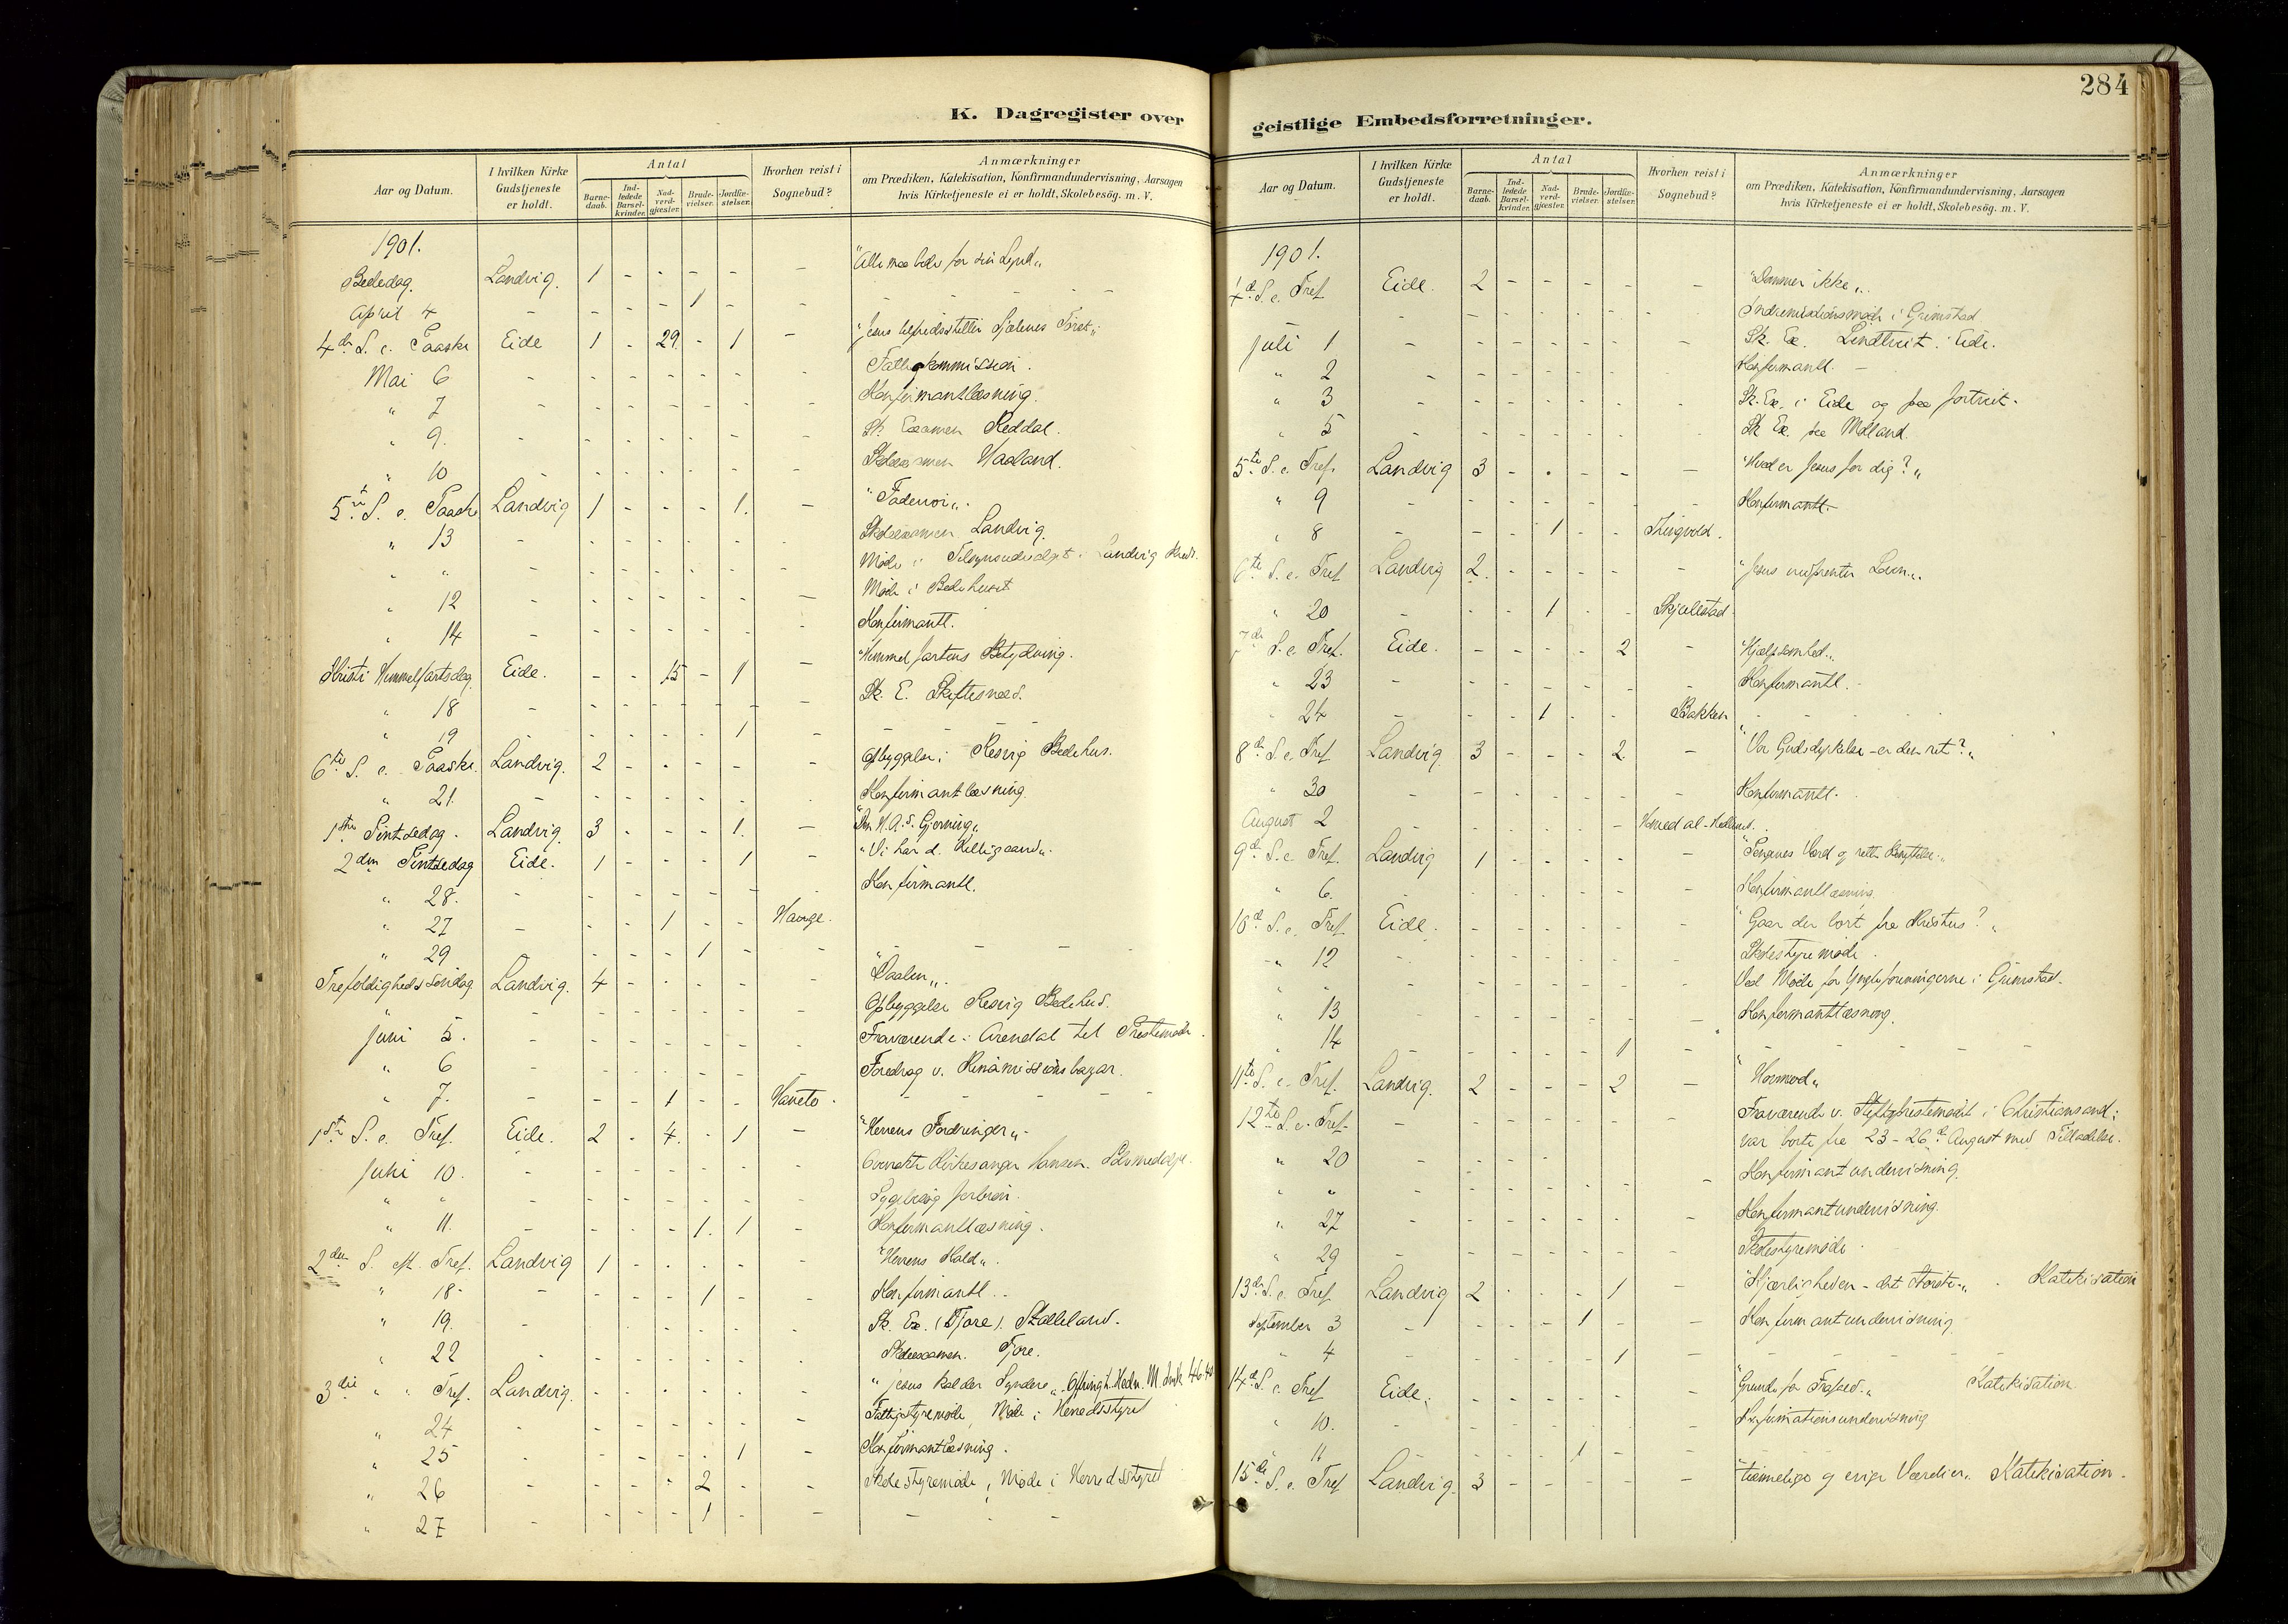 284
K. Dagregister over
Aar og Datum.
I hvilken Kirke Gudstjeneste er holdt.
Antal
Barne-daab.
Ind-ledede Barsel-kvinder.
Nad-verd-gjæster.
Brude-vielser.
Jordfæ-stelser.
Hvorhen reist i Sognebud?
Anmærkninger
om Prædiken, Katekisation, Konfirmandundervisning, Aarsagen
hvis Kirketjeneste ei er holdt, Skolebesög. m. V.
1901.
Bededag. Landvig. 1 - - - - - "Alle maa bede for sin Synd"
April 4 - - - - 1 - - -
4de S. e. Paaske Eide 1 - 29. - 1 - "Jesus tilfredsstiller Sjælenes Tørst"
Mai 6 - - - - - - - Fattigkommission.
" 7 - - - - - - - Konfirmantlæsning.
" 9. - - - - - - - Sk. Examen Reddal.
" 10 - - - - - - - Skoleexamen Haaland.
5te S. e. Paaske Landvig 1 - - - 1. - "Fadervor".
" 13 - - - - - - - Skoleexamen Landvig.
" " - - - - - - - Møde i Tilsynsudvalget i Landvig Kreds.
" 12 - - - - - - - Møde i Bedehuset
" 14 - - - - - - - Konfirmantl.
Kristi Himmelfartsdag Eide. - - 15 - 1 - "Himmelfartens Betydning.
" 18 - - - - - - - Sk. E. Skiftenes.
" 19 - - - - - 1 - -
6te S. e. Paaske. Landvig. 2 - - - - - Opbyggelse i Resvig Bedehus.
" 21. - - - - - - - Konfirmantlæsning.
1ste Pintsedag. Landvig. 3 - - - 1. - "Den H. A.s Gjerning"
2den Pintsedag Eide. 1 - - - 1 "Vi har d. Helligaand".
" 28. - - - - - - Konfirmantl.
" 27 - - - 1 - - Hauge.
" 29 - - - - 1 - - -
Trefoldigheds søndag Landvig. 4 - - - - - "Daaben".
" - - - - - - Opbyggelse Resvig Bedehus.
Juni 5. - - - - - - - Fraværende i Arendal til Prestemøde.
" 6 - - - - - - - Foredrag v. Kinamissionsbazar.
" 7. - - - 1 - - Haveto. -
1ste S. e. Tref. Eide. 2 - 4. - 1 - "Herrens Fordringer".
Juni 10. - - - - - - - Overrakte Kirkesanger Hansen. Sølvmedalje.
" " - - - - - - -
" 11. - - - - 1. 1 - Konfirmantlæsning.
2den S. eft. Tref. Landvig 1 - - - - - "Herrens Kald".
" 18 - - - - - 1 - - Konfirmantl.
" 19. - - - - - - - Sk. Ex. (Fjære). Skalleland.
" 22 - - - - - - - Skoleexamen. Fjære.
3die " " Tref. Landvig. - - - - - - "Jesus kalder Syndere".
" 24 - - - - - - - Fattigstyremøde, Møde i Herredsstyret
" 25 - - - - - 1 - Konfirmantlæsning.
" 26 - - - - 2 - - Skolestyremøde, Møde i Herredsstyret
" 27 - - - - 1 - - -
geistlige Embedsforretninger.
Aar og Datum.
I hvilken Kirke Gudstjeneste er holdt.
Antal
Barne-daab.
Ind-ledede Barsel-kvinder.
Nad-verd-gjæster.
Brude-vielser.
Jordfæ-stelser.
Hvorhen reist i Sognebud?
Anmærkninger
om Prædiken, Katekisation, Konfirmandundervisning, Aarsagen
hvis Kirketjeneste ei er holdt, Skolebesög. m. V.
1901.
4de S. e. Tref. Eide. 2 - - - - - "Dømmer ikke".
- - - - - - - Indremissionsmøde i Grimstad
Juli 1 - - - - - - - Sk. Ex. Lindtveit i Eide.
" 2 - - - - - - - Konfirmantl. -
" 3 - - - - - - - Sk. Ex. i Eide og paa Fortveit.
" 5 - - - - - - - Sk. Ex. paa Molland.
5te S. e. Tref. Landvig 3 - - - - - "Hvad er Jesus for dig?"
" 9 - - - - - - - Konfirmantl.
" 8 - - - - 1 - - Thingvold.
6te S. e. Tref. Landvig 2. - - - - - "Jesus
" 20 - - - 1 - - Skjællestad
7de S. e. Tref. Eide. - - - - 2 - "Hjælpsomhed".
" 23 - - - - - - - Konfirmantl.
" 24 - - - 1 - - Bakken -
8de S. e. Tref Landvig. 3 - - - 2. - "Vor Gudsdyrkelse - er den ret?"
" 30 - - - - - - - Konfirmantl.
August 2 - - - - - -
9de S. e. Tref. Landvig 1 - - - - - "Pengenes Værd og rette Benyttelse".
" 6. - - - - - - - Konfirmantlæsning
10de S. e. Tref Eide. - - - - - - "Gaar du bort fra Kristus?"
" 12 - - - - - - - Skolestyremøde.
" - - - - - - - Ved Møde for Ynglingeforeningerne i Grimstad.
" 13 - - - - - - - Konfirmantlæsning.
" 14 - - - - - 1 - -
11te S. e. Tref. Landvig. 2 - - - 2 - "Hovmod"
12te S. e. Tref. - - - - - - Fraværende v. Stiftsprestemødet i Christiansand;
var borte fra 23-26de August med Tilladelse.
" 20 - - - - - - - Konfirmantundervisning.
" " - - - - - - - Konfirmantundervisning.
" 27 - - - - - - -
" 29 - - - - - - - Skolestyremøde.
13de S. e. Tref Landvig 2 - - - 1 - "Kjærligheden - det Største". Katekisation
September 3 - - - - 1 - - Konfirmantundervisning
" 4 - - - - - 1 - -
14de S. e. Tref Eide. - - - - - - "Grunde for Frafald". Katekisation
" 10. - - - - - - - Konfirmationsundervisning
" 11 - - - - 1 - -
15de S. e. Tref Landvig. 3 - - - - - "Timelige og evige Værdier". Katekisation.